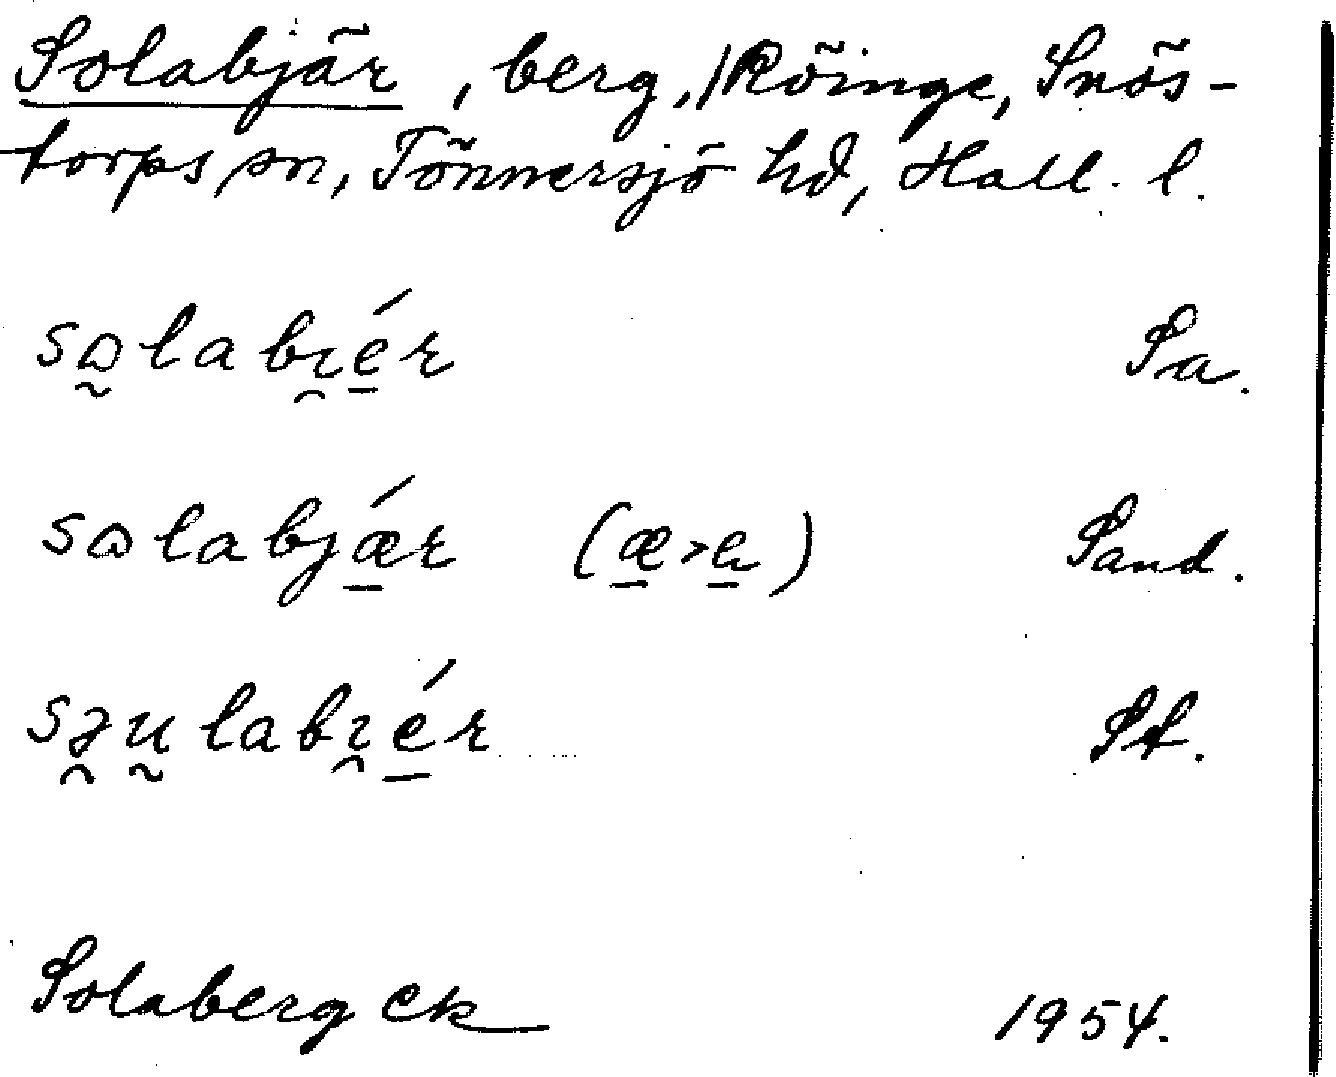 Solabjär, berg, Röinge, Snös-
torps sn, Tönnersjö hd, Hall. l.
sɷ̰labı̯é̱r Sa.
sɷlabjǽ̱r (æ̱>e̱) Sand.
sə̯ṵlabı̯é̱r St.
Solaberg ek 1954.